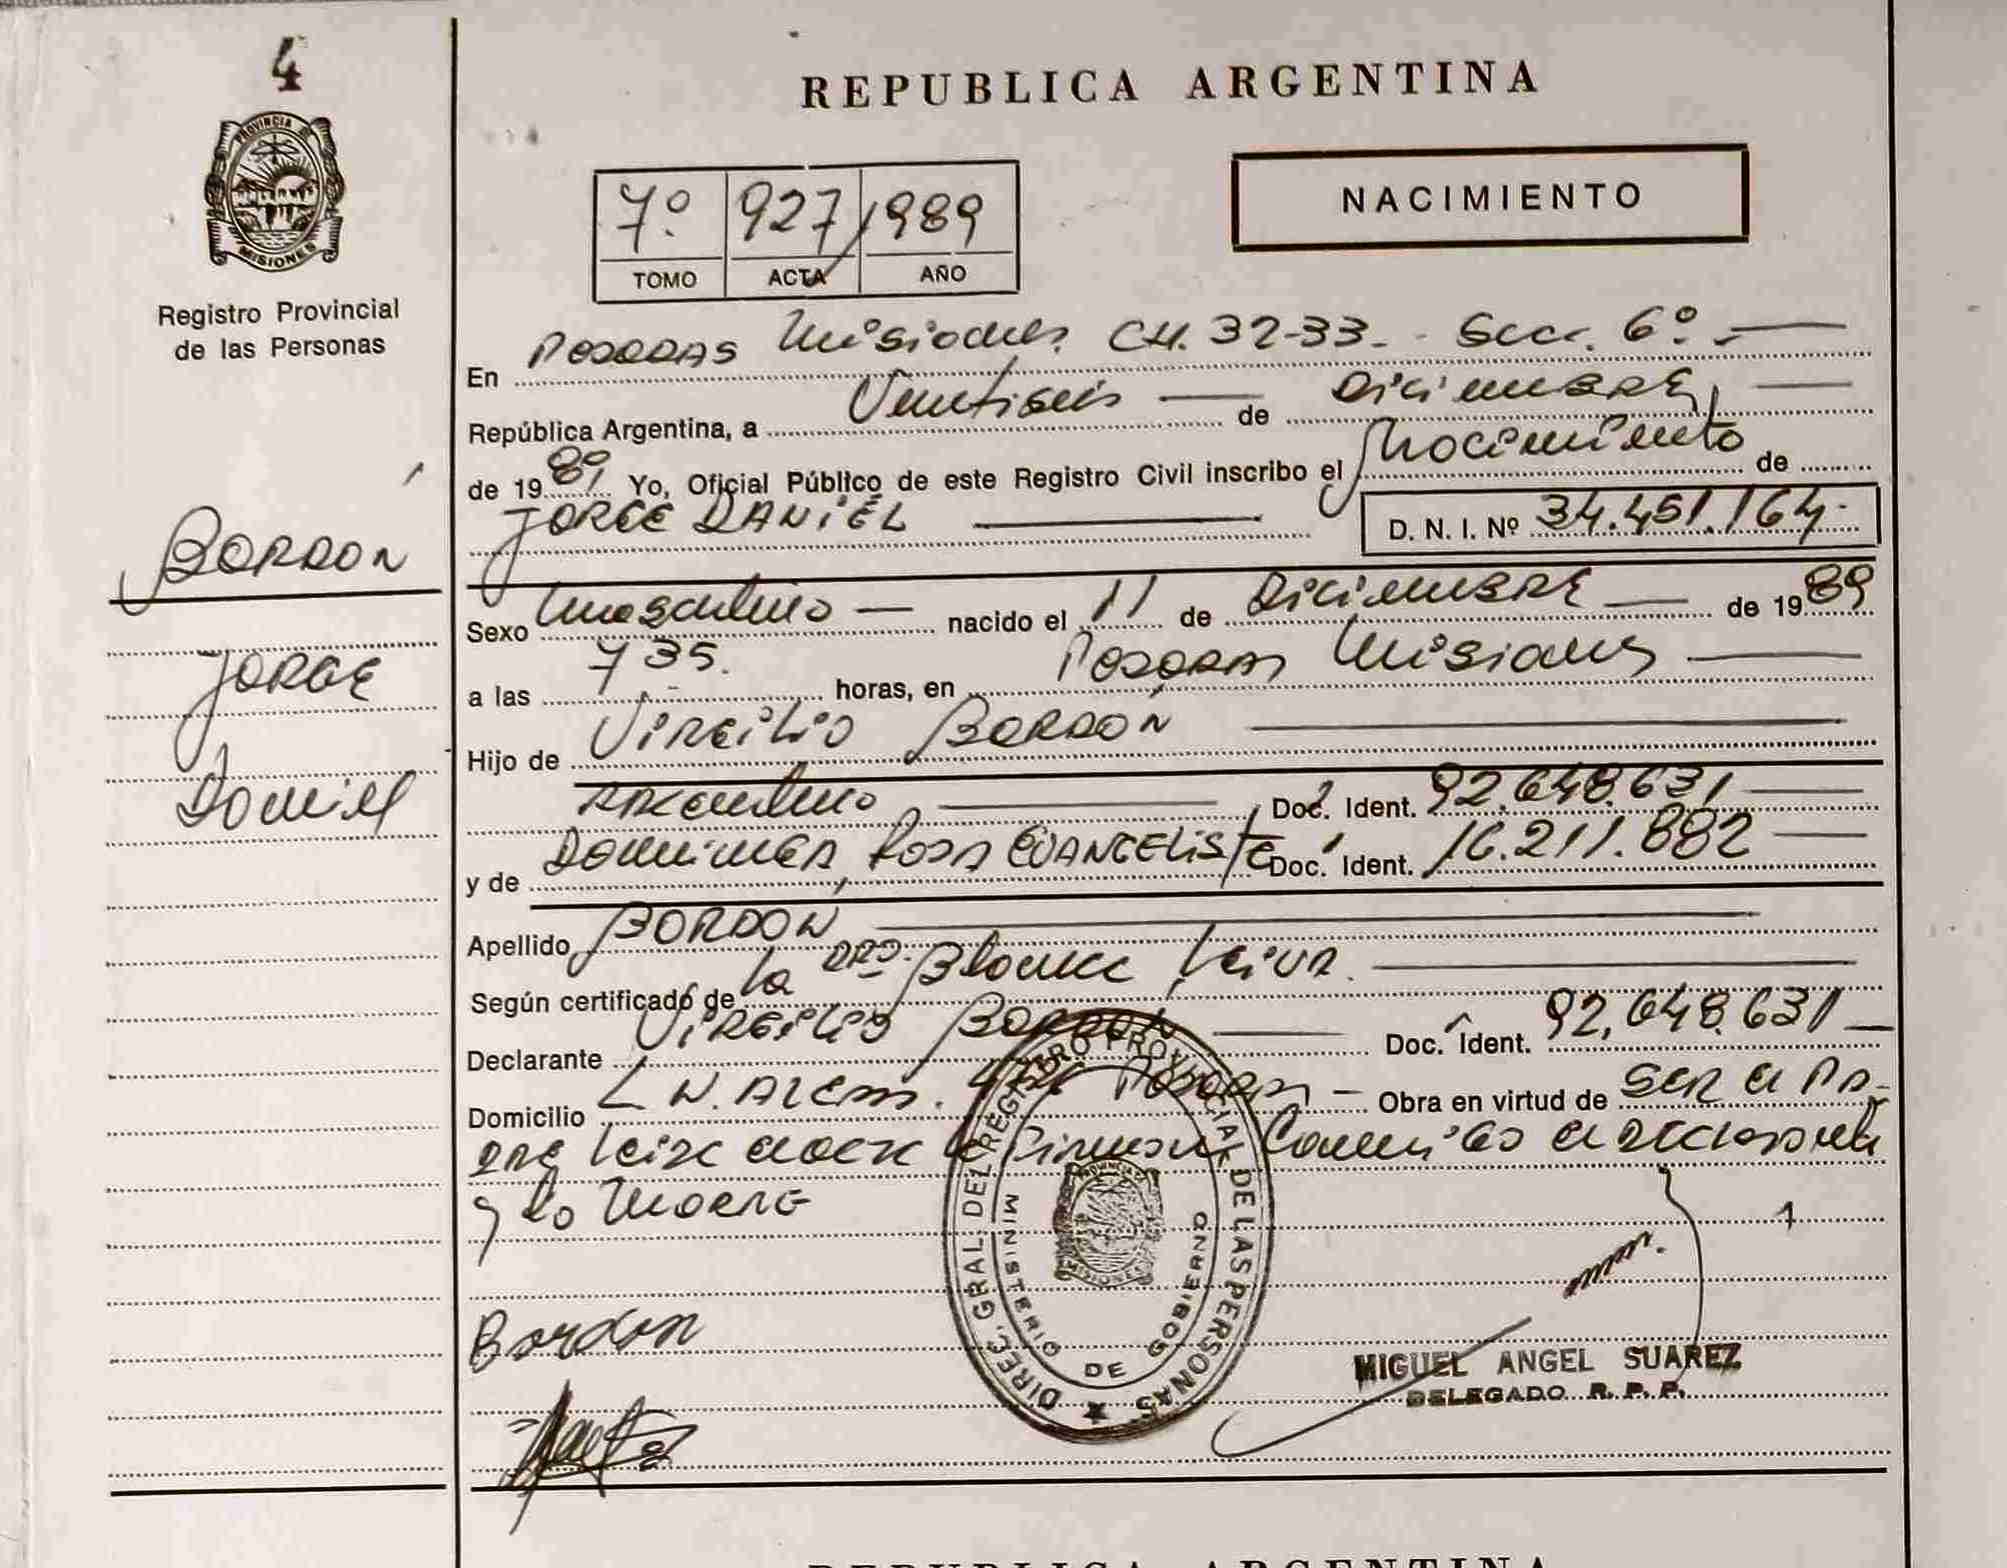 4
PROVINCIA DE
MISIONES
Registro Provincial
de las Personas
BORDON
JORGE
Daniel
REPUBLICA ARGENTINA
7º 927 1989
TOMO ACTA AÑO
NACIMIENTO
En POSADAS Misiones. CH. 32-33. - Secc. 6º. -
República Argentina, a Veintiseis de Diciembre,
de 1989 Yo, Oficial Público de este Registro Civil inscribo el Nacimiento de
JORGE DANIEL D. N. I. Nº 34.451.164.-
Sexo Masculino nacido el 11 de Diciembre de 1989
a las 7 35. horas, en Posadas Misiones
Hijo de Virgilio BORDÓN
Argentino Doc. Ident. 92.648.631
y de Domínguez, Rosa EVANGELISTA Doc. Ident. 16.211.882
Apellido BORDON
Según certificado de la Dra. Blanca Leiva.
Declarante Virgilio BORDON Doc. Ident. 92.648.631
Domicilio L. N. Alem. Posadas - Obra en virtud de SER el Pa-
dre el declarante
y la Madre
Bordon
DIREC. GRAL. DEL REGISTRO PROVINCIAL DE LAS PERSONAS
MINISTERIO DE GOBIERNO
MISIONES
MIGUEL ANGEL SUAREZ
DELEGADO R. P. P.
REPUBLICA ARGENTINA